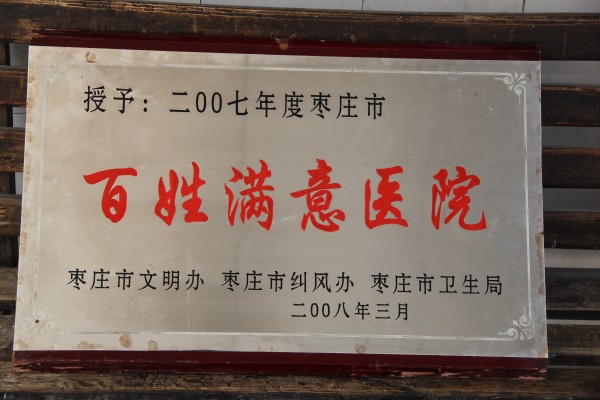 授予：二00七年度枣庄市
百姓满意医院
枣庄市文明办 枣庄市纠风办 枣庄市卫生局
二00八年三月